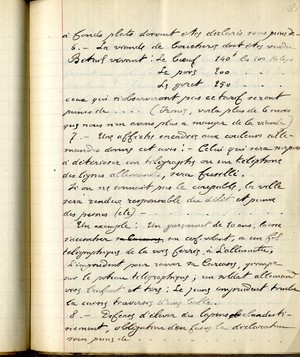 à fonds plats doivent êtes déclarés sous peine de
6. - La viande de boucherie doit être vendue
Bétail vivant : Le bœuf 140 les 100 kilogs
Le porc 200 . . . .
Le goret 250 . . . .
ceux qui n'observeront pas ce tarif seront
punis de . . . . ( voilà plus de 6 mois
que nous n'en avons plus à manger de la viande )
7. - Une affiche encadrée aux couleurs alle-
mandes donne cet avis : - Celui qui sera surpris
à détériorer un télégraphe ou un téléphone
des lignes allemandes, sera fusillé.
Si on ne connait pas le coupable, la ville
sera rendue responsable du délit et punie
des peines (etc) -
Un exemple : Un garçonnet de 10 ans,
un cerf-volant, a un fil
télégraphique de la voie ferrée,
L'imprudent pour ravoir
sur le poteau télégraphique ; un soldat allemand
voit l'enfant et tire. Le jeune imprudent tombe
la cuisse traversée d'une balle.
8. - Défense d'élever des lapins clandestine-
ment, obligation d'en faire la déclaration
sous peine de . . . .